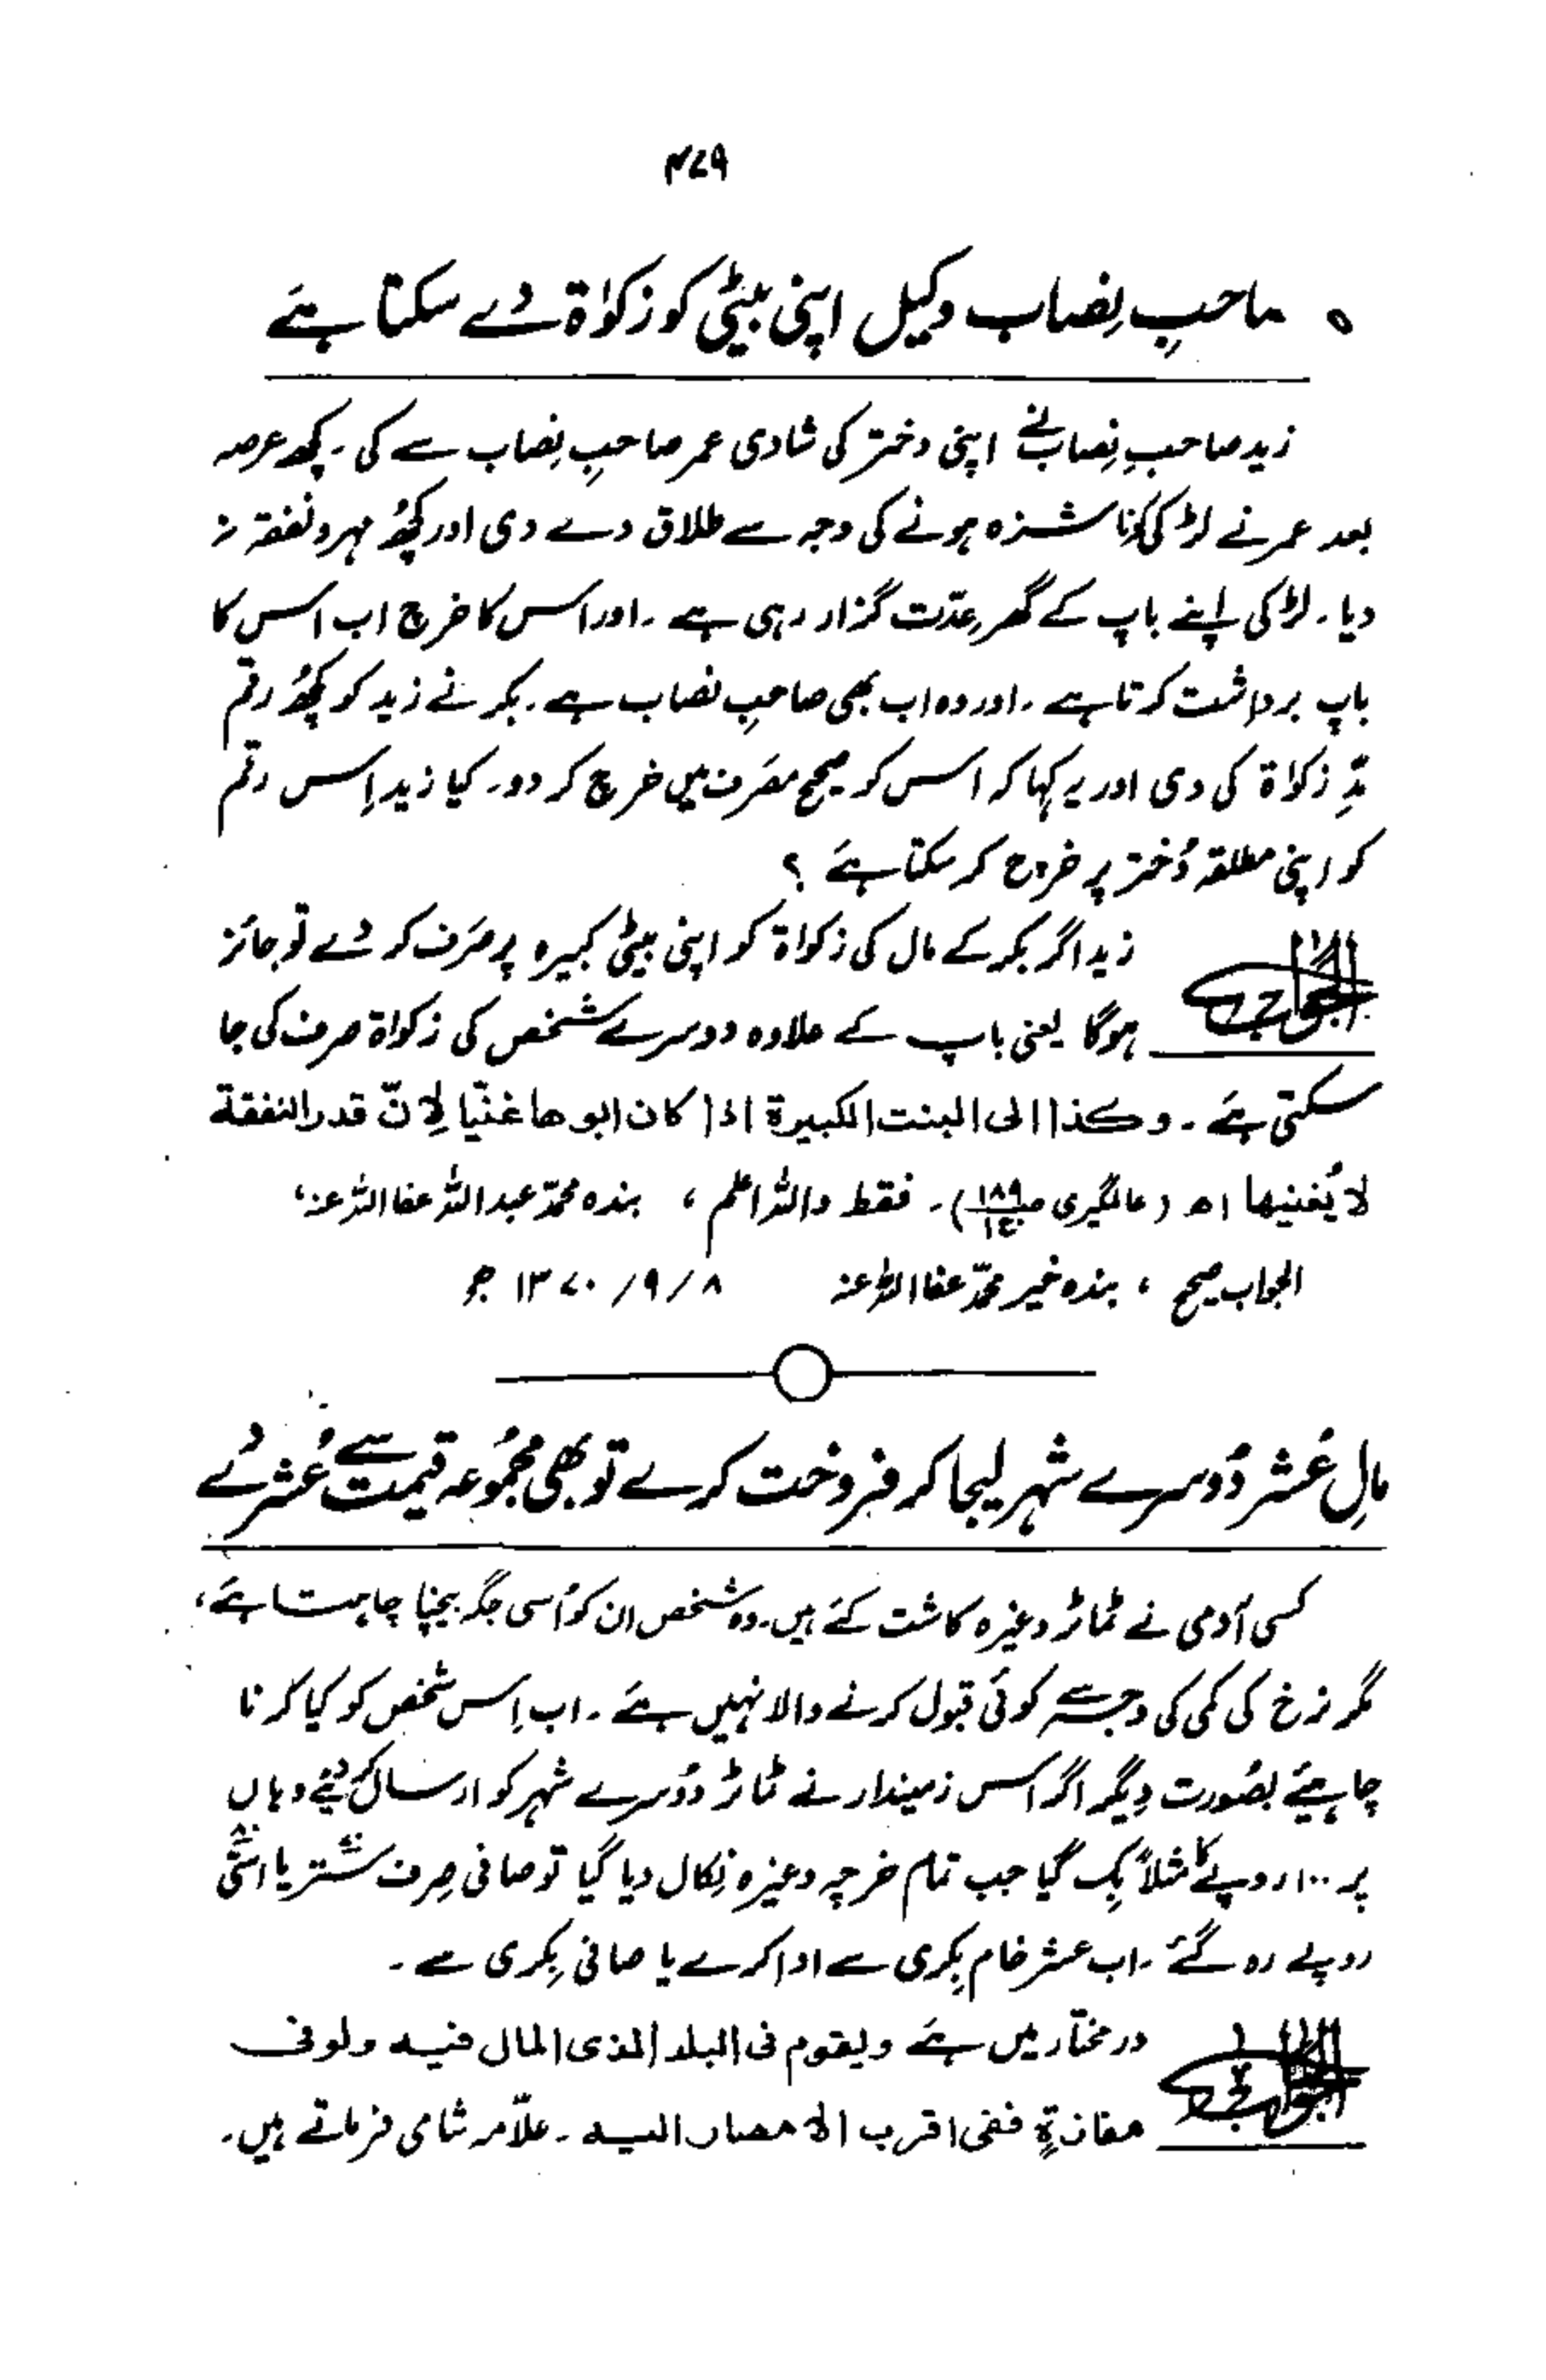 ۴۷۹
• صاحبِ نِصاب وکیل اپنی بیٹی کو زکوٰۃ دے سکتا ہے
زید صاحبِ نِصاب نے اپنی دختر کی شادی عمر صاحبِ نِصاب سے کی۔ کچھ عرصہ
بعد عمر نے لڑکی کو ناشزہ ہونے کی وجہ سے طلاق دے دی اور کچھ مہر و نفقہ نہ
دیا۔ لڑکی اپنے باپ کے گھر عِدّت گزار رہی ہے۔ اور اس کا خرچ اب اس کا
باپ برداشت کرتا ہے۔ اور وہ اب بھی صاحبِ نصاب ہے۔ بکر نے زید کو کچھُ رقم
مدِّ زکوٰۃ کی دی اور یہ کہا کہ اس کو صحیح مصَرف میں خرچ کر دو۔ کیا زید اِس رقم
کو اپنی مطلقہ دُختر پر خرچ کر سکتا ہے ؟
الجواب زید اگر بکر کے مال کی زکواۃ کو اپنی بیٹی کبیرہ پر صَرف کر دے تو جائز
ہوگا یعنی باپ کے علاوہ دوسرے شخص کی زکواۃ صرف کی جا
سکتی ہے۔ وكذا الى البنت الكبيرة اذا كان ابوها غنيّا لِانّ قدر النفقة
لا يُغنيها اھ (عالمگیری ص۱۸۹ ج۱)۔ فقط واللہ اعلم ، بندہ محمّد عبد اللہ عفا اللہ عنہ،
الجواب صحیح ، بندہ خیر محمّد عفا اللہ عنہ ۸ / ۹ / ۱۳۷۰ ھ
مالِ عُشر دُوسرے شہر لیجا کر فروخت کرے تو بھی مجمُوعہ قیمت سے عُشر دے
کسی آدمی نے ٹماٹر وغیرہ کاشت کئے ہیں۔ وہ شخص ان کو اُسی جگہ بیچنا چاہتا ہے،
مگر نرخ کی کمی کی وجہ سے کوئی قبول کرنے والا نہیں ہے۔ اب اِس شخص کو کیا کرنا
چاہیئے بصُورت دِیگر اگر اس زمیندار نے ٹماٹر دوُسرے شہر کو ارسال کر دئیے وہاں
پر ۱۰۰ روپے کا مثلاً بِک گیا جب تمام خرچہ وغیرہ نِکال دیا گیا تو صافی صِرف ستّر یا اسّی
روپے رہ گئے۔ اب عشر خام بِکری سے ادا کرے یا صافی بِکری سے۔
الجواب در مختار میں ہے ويقوم فی البلد الذی المال فيه ولو فی
مفازةٍ ففی اقرب الامصار اليه۔ علاّمہ شامی فرماتے ہیں۔